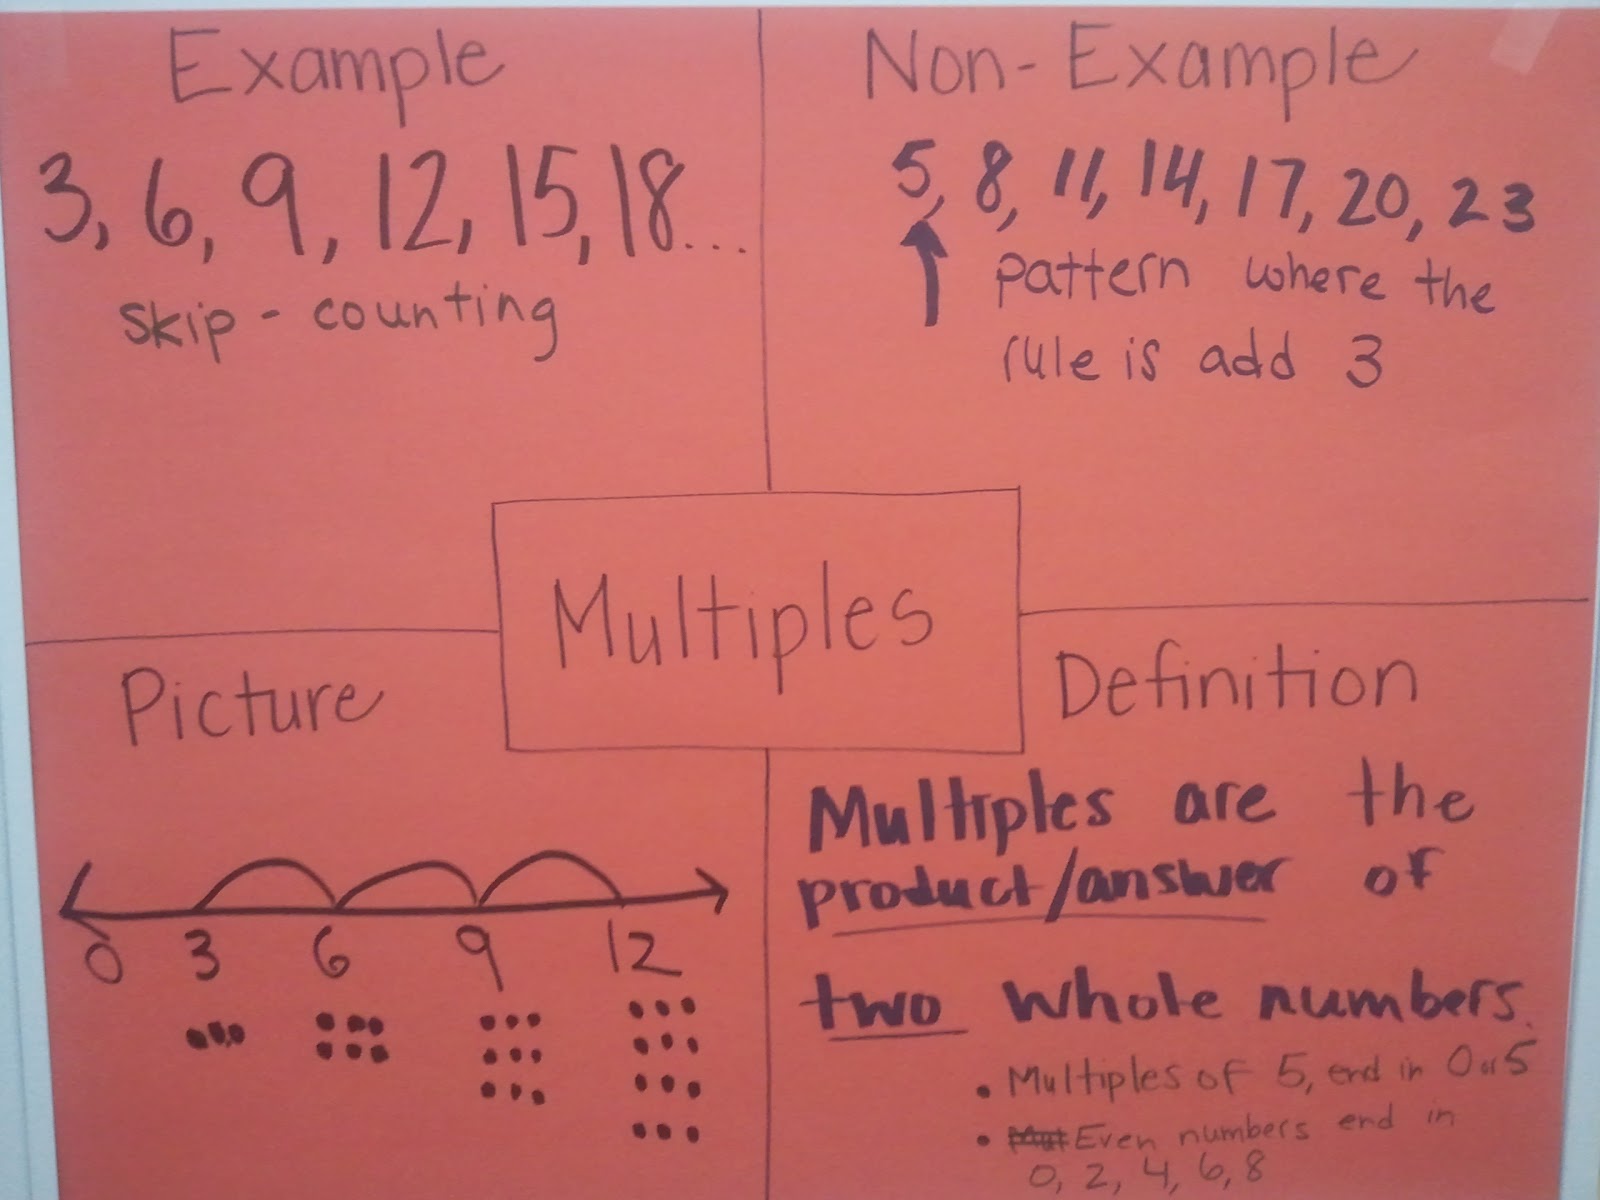 Example
3, 6, 9, 12, 15, 18...
skip-counting
Non-Example
5, 8, 11, 14, 17, 20, 23
pattern where the
rule is add 3
Multiples
Picture
0 3 6 9 12
Definition
Multiples are the
product/answer of
two whole numbers.
• Multiples of 5, end in 0 or 5
• Even numbers end in
0, 2, 4, 6, 8